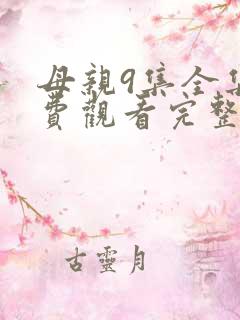 母親9集全集
費觀看完整
古靈月